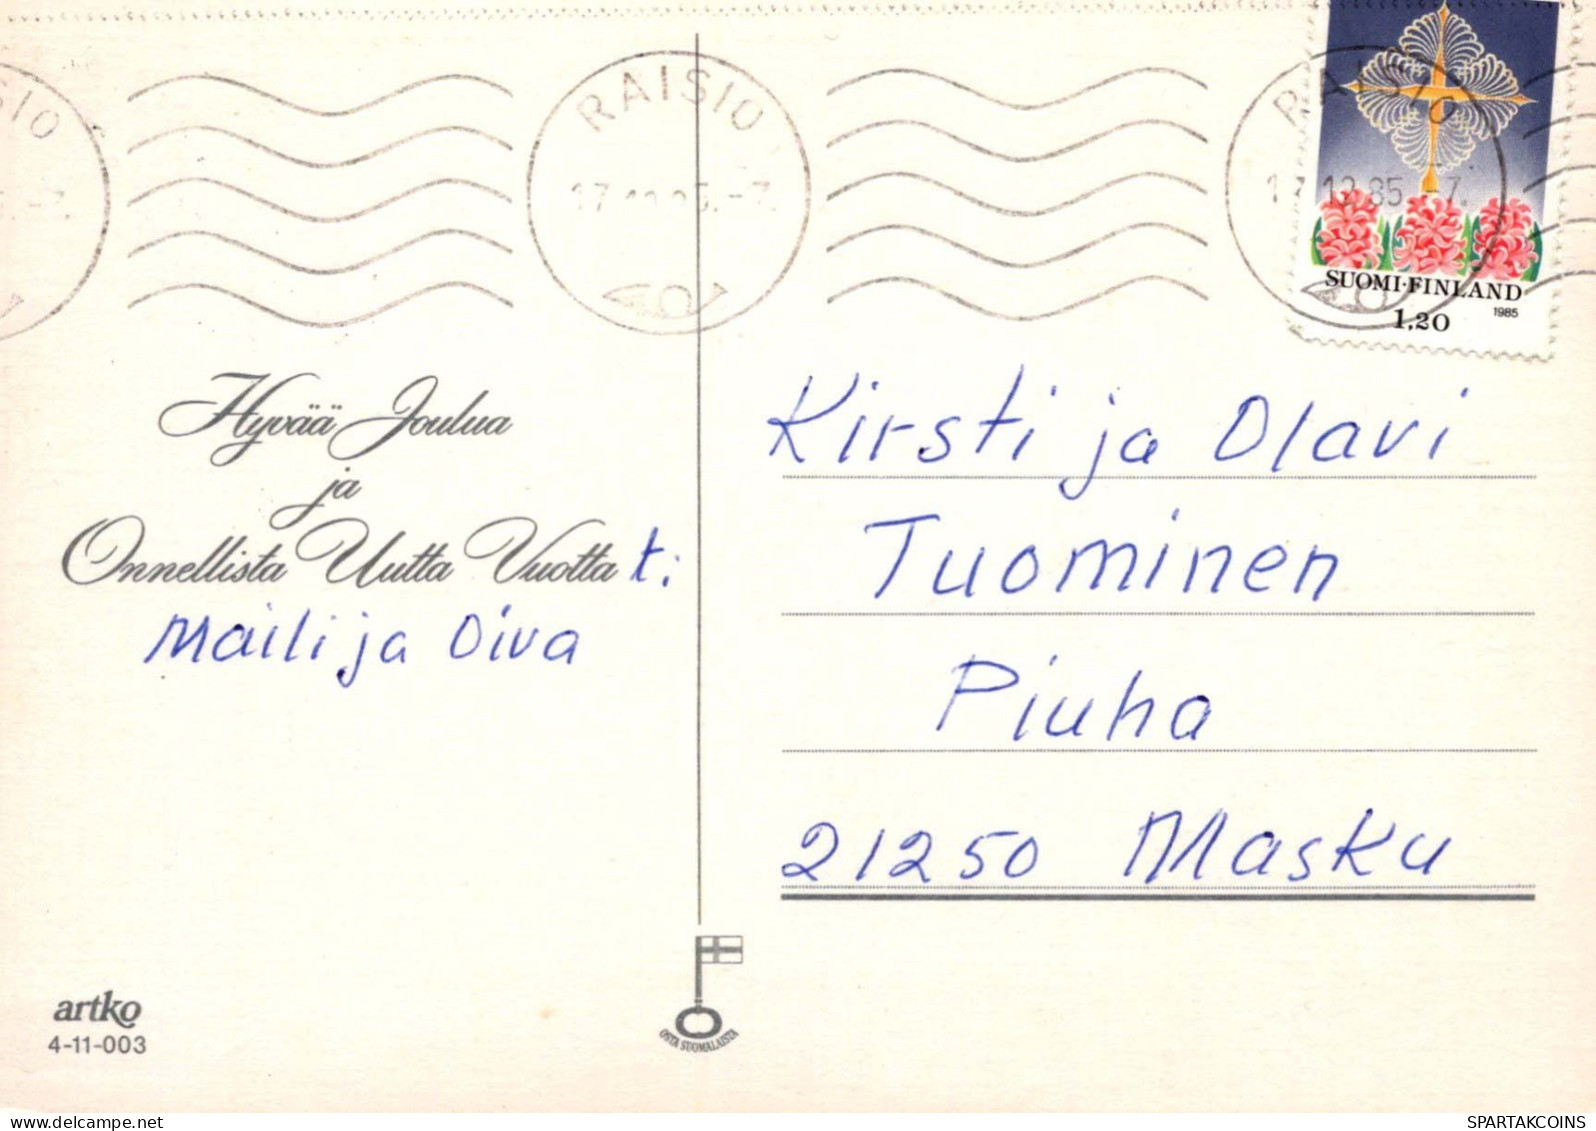 RAISIO
17.12.85.-7.
RAISIO
12.85.-7.
SUOMI·FINLAND
1985
1,20
Hyvää Joulua
ja
Onnellista Uutta Vuotta t:
Maili ja Oiva
Kirsti ja Olavi
Tuominen
Piuha
21250 Masku
artko
4-11-003
OSTA SUOMALAISTA
www.delcampe.net
SPARTAKCOINS